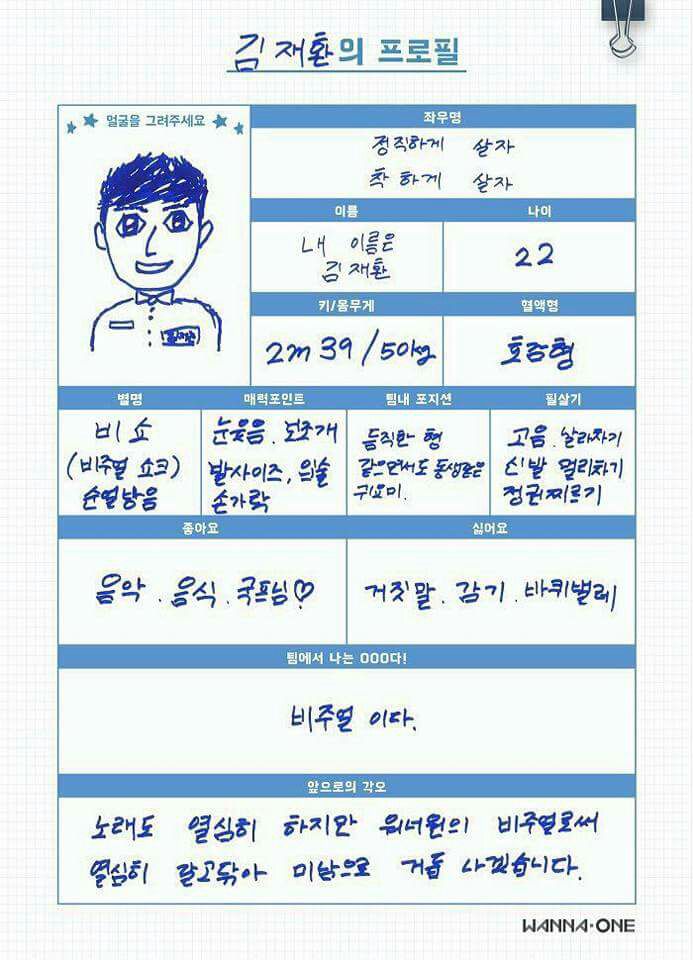 김재환의 프로필
얼굴을 그려주세요
좌우명
정직하게 살자
착하게 살자
이름
내 이름은
김재환
나이
22
키/몸무게
2m 39 / 50kg
혈액형
호중형
별명
비쇼
(비주얼 쇼크)
순열낳음
매력포인트
눈웃음. 보조개
발사이즈, 의술
손가락
팀내 포지션
듬직한 형
같으면서도 동생같은
귀요미.
필살기
고음. 날라차기
신발 멀리차기
정권찌르기
좋아요
음악. 음식. 국프님♡
싫어요
거짓말. 감기. 바퀴벌레
팀에서 나는 OOO다!
비주얼 이다.
앞으로의 각오
노래도 열심히 하지만 워너원의 비주얼로써
열심히 갈고닦아 미남으로 거듭 나겠습니다.
WANNA·ONE